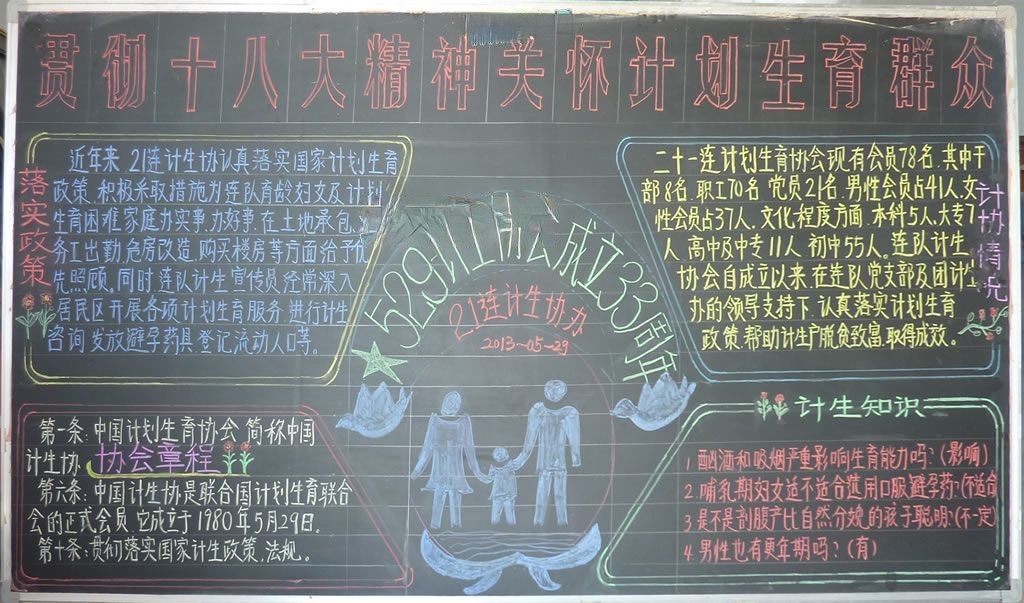 贯彻十八大精神关怀计划生育群众
落实政策
近年来 21连计生协认真落实国家计划生育
政策.积极采取措施为连队育龄妇女及计划
生育困难家庭办实事.力好事.在土地承包.
务工出勤.危房改造.购买楼房等方面给予优
先照顾.同时连队计生宣传员经常深入
居民区开展各项计划生育服务.进行计生
咨询.发放避孕药具.登记流动人口等。
529计生协会成立33周年
21连计生协办
2013-05-29
计协情况
二十一连计划生育协会现有会员78名.其中干
部8名.职工70名.党员21名.男性会员占41人.女
性会员占37人.文化程度方面.本科5人.大专7
人.高中及中专11人.初中55人。连队计生
协会自成立以来.在连队党支部及团计生
办的领导支持下.认真落实计划生育
政策.帮助计生户脱贫致富.取得成效。
第一条:中国计划生育协会 简称中国
计生协
协会章程
第六条:中国计生协是联合国计划生育联合
会的正式会员.它成立于1980年5月29日。
第十条:贯彻落实国家计生政策.法规。
计生知识
1.酗酒和吸烟严重影响生育能力吗?(影响)
2.哺乳期妇女适不适合选用口服避孕药?(不适合
3.是不是剖腹产比自然分娩的孩子聪明?(不一定)
4.男性也有更年期吗?(有)